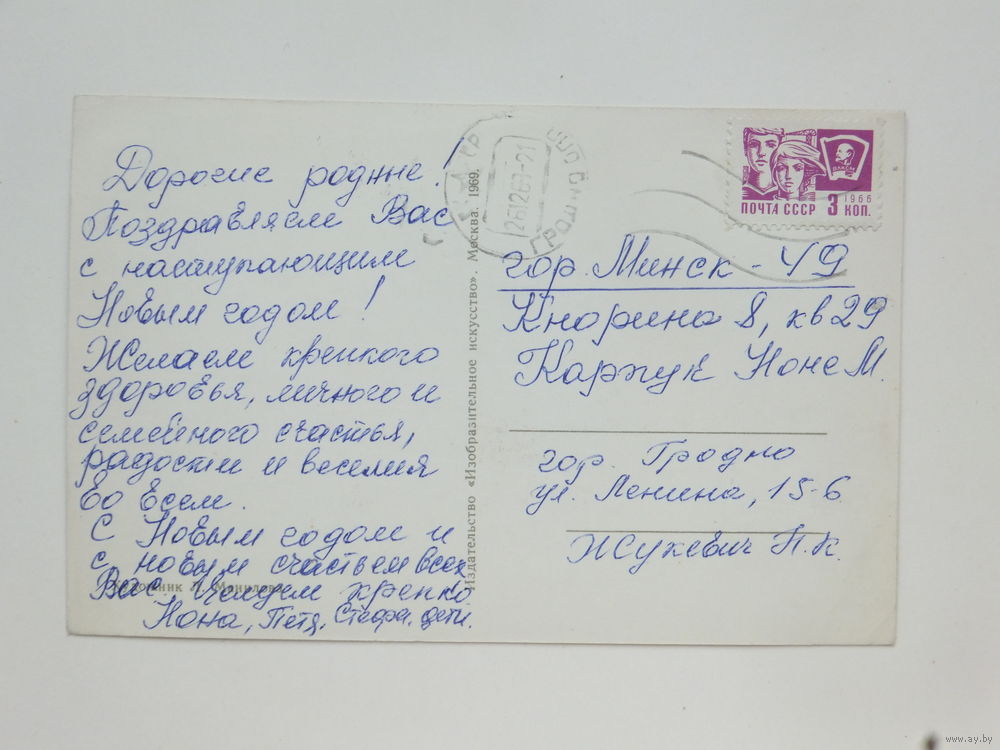 Дорогие родные!
Поздравляем Вас
с наступающим
Новым годом!
Желаем крепкого
здоровья, личного и
семейного счастья,
радости и веселия
Во всем.
С Новым годом и
с новым счастьем всех
Вас Целуем крепко
Нона, Петя, Стефа, дети.
Издательство «Изобразительное искусство». Москва. 1969.
261269-21
ПОЧТА СССР 3 КОП.
1966
ВЛКСМ
гор. Минск - 49
Кнорина 8, кв 29
Карпук Ноне М.
гор. Гродно
ул. Ленина, 15-6
Жукевич П.К.
www.ay.by